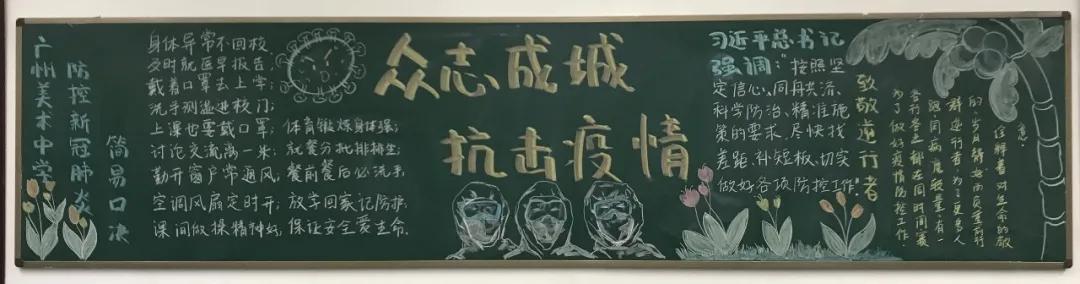 广州美术中学
防控新冠肺炎
简易口决
身体异常不回校,
及时就医早报告;
戴着口罩去上学;
洗手测温进校门;
上课也要戴口罩;
讨论交流离一米;
勤开窗户常通风;
空调风扇定时开;
课间做操精神好;
体育锻炼身体强;
就餐分批排排坐;
餐前餐后必洗手;
放学回家记防护;
保证安全爱生命.
众志成城
抗击疫情
习近平总书记
强调:按照坚
定信心、同舟共济、
科学防治、精准施
策的要求,尽快找
差距、补短板、切实
做好各项防控工作
致敬逆行者
意。
诠释着对生命的敬
的岁月静好而负重前行
群逆行者为了更多人
跑,同病魔较量,有一
各行各业都在同时间赛
为了做好疫情防控工作